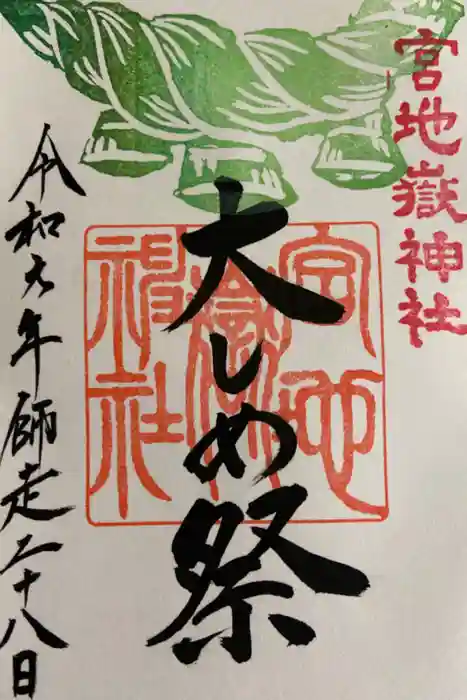 宮地嶽神社
大しめ祭
宮地
嶽
神社
令和六年師走二十八日